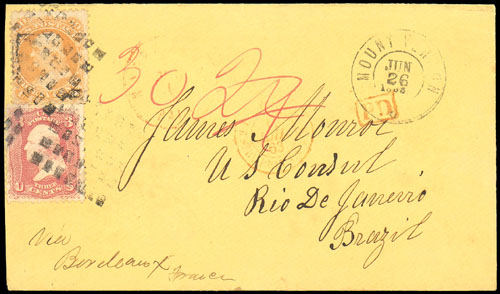 30 24
JUN
26
PD
James Monroe
U S Consul
Rio De Janeiro
Brazil
via
Bordeaux
France
POSTAGE
THREE
CENTS